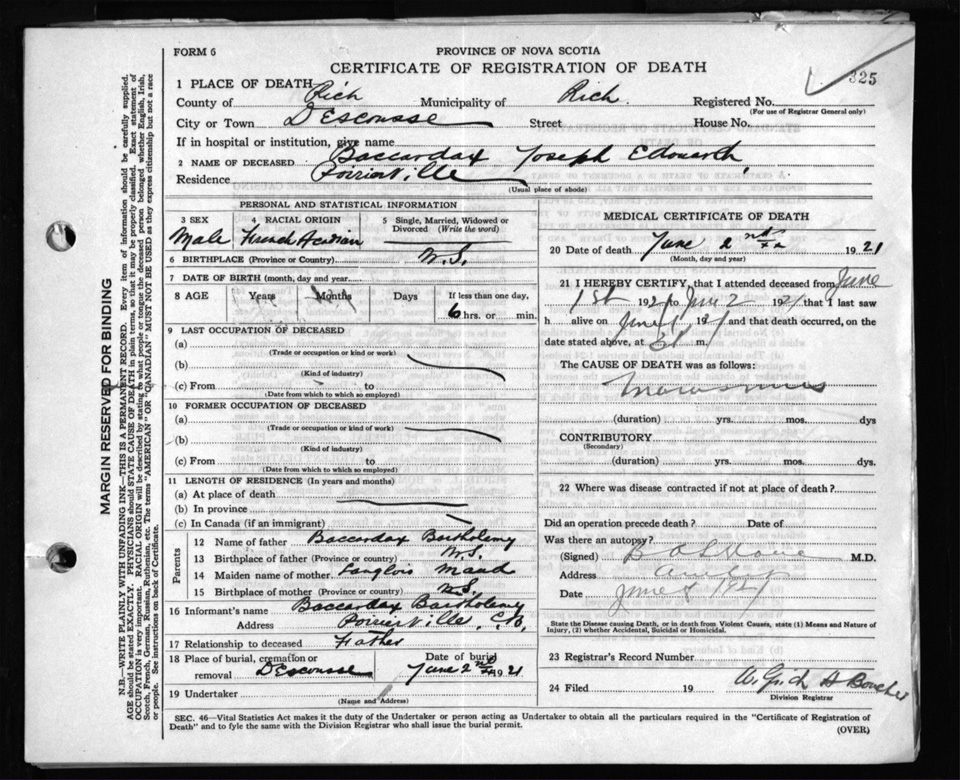 FORM 6
PROVINCE OF NOVA SCOTIA
CERTIFICATE OF REGISTRATION OF DEATH
325
1 PLACE OF DEATH
County of Rich Municipality of Rich. Registered No.
(For use of Registrar General only)
City or Town D'Escousse Street House No.
If in hospital or institution, give name
2 NAME OF DECEASED Baccardax Joseph Edouard,
Residence Poirierville
(Usual place of abode)
PERSONAL AND STATISTICAL INFORMATION
3 SEX 4 RACIAL ORIGIN 5 Single, Married, Widowed or Divorced (Write the word)
Male French Acadian
6 BIRTHPLACE (Province or Country) N.S.
7 DATE OF BIRTH (month, day and year)
8 AGE Years Months Days If less than one day,
6 hrs. or min.
9 LAST OCCUPATION OF DECEASED
(a)
(Trade or occupation or kind or work)
(b)
(Kind of industry)
(c) From to
(Date from which to which so employed)
10 FORMER OCCUPATION OF DECEASED
(a)
(Trade or occupation or kind of work)
(b)
(Kind of industry)
(c) From to
(Date from which to which so employed)
11 LENGTH OF RESIDENCE (In years and months)
(a) At place of death
(b) In province
(c) In Canada (if an immigrant)
Parents
12 Name of father Baccardax Bartholemy
13 Birthplace of father (Province or country) N.S.
14 Maiden name of mother Langlois Maud
15 Birthplace of mother (Province or country) N.S.
16 Informant's name Baccardax Bartholemy
Address Poirierville, C.B,
17 Relationship to deceased Father
18 Place of burial, cremation or removal D'Escousse Date of burial June 2nd 1921
19 Undertaker
(Name and Address)
MEDICAL CERTIFICATE OF DEATH
20 Date of death June 2nd 1921
(Month, day and year)
21 I HEREBY CERTIFY, that I attended deceased from June
1st 192 to June 2 192 that I last saw
h alive on June 1 19 and that death occurred, on the
date stated above, at m.
The CAUSE OF DEATH was as follows:
Marasmus
(duration) yrs. mos. dys
CONTRIBUTORY
(Secondary)
(duration) yrs. mos. dys.
22 Where was disease contracted if not at place of death?
Did an operation precede death? Date of
Was there an autopsy?
(Signed) M.D.
Address
Date June
State the Disease causing Death, or in death from Violent Causes, state (1) Means and Nature of Injury, (2) whether Accidental, Suicidal or Homicidal.
23 Registrar's Record Number
24 Filed 19
Division Registrar
SEC. 46—Vital Statistics Act makes it the duty of the Undertaker or person acting as Undertaker to obtain all the particulars required in the "Certificate of Registration of
Death" and to fyle the same with the Division Registrar who shall issue the burial permit.
(OVER)
MARGIN RESERVED FOR BINDING
N.B.—WRITE PLAINLY WITH UNFADING INK—THIS IS A PERMANENT RECORD. Every item of information should be carefully supplied.
AGE should be stated EXACTLY. PHYSICIANS should STATE CAUSE OF DEATH in plain terms, so that it may be properly classified. Exact statement of
OCCUPATION is very important. RACIAL ORIGIN will be described by stating to what people or tongue the deceased person belonged whether English, Irish,
Scotch, French, German, Russian, Ruthenian, etc. The terms "AMERICAN" OR "CANADIAN" MUST NOT BE USED as they express citizenship but not a race
or people. See instructions on back of Certificate.